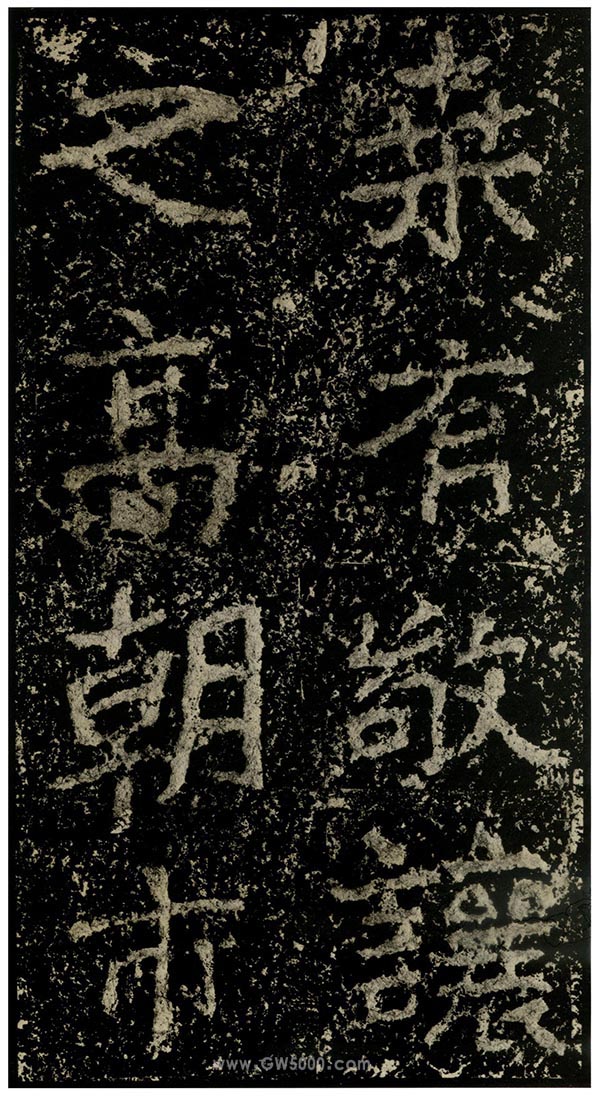 桒有敬讓
之髙朝市
www.GW5000.com